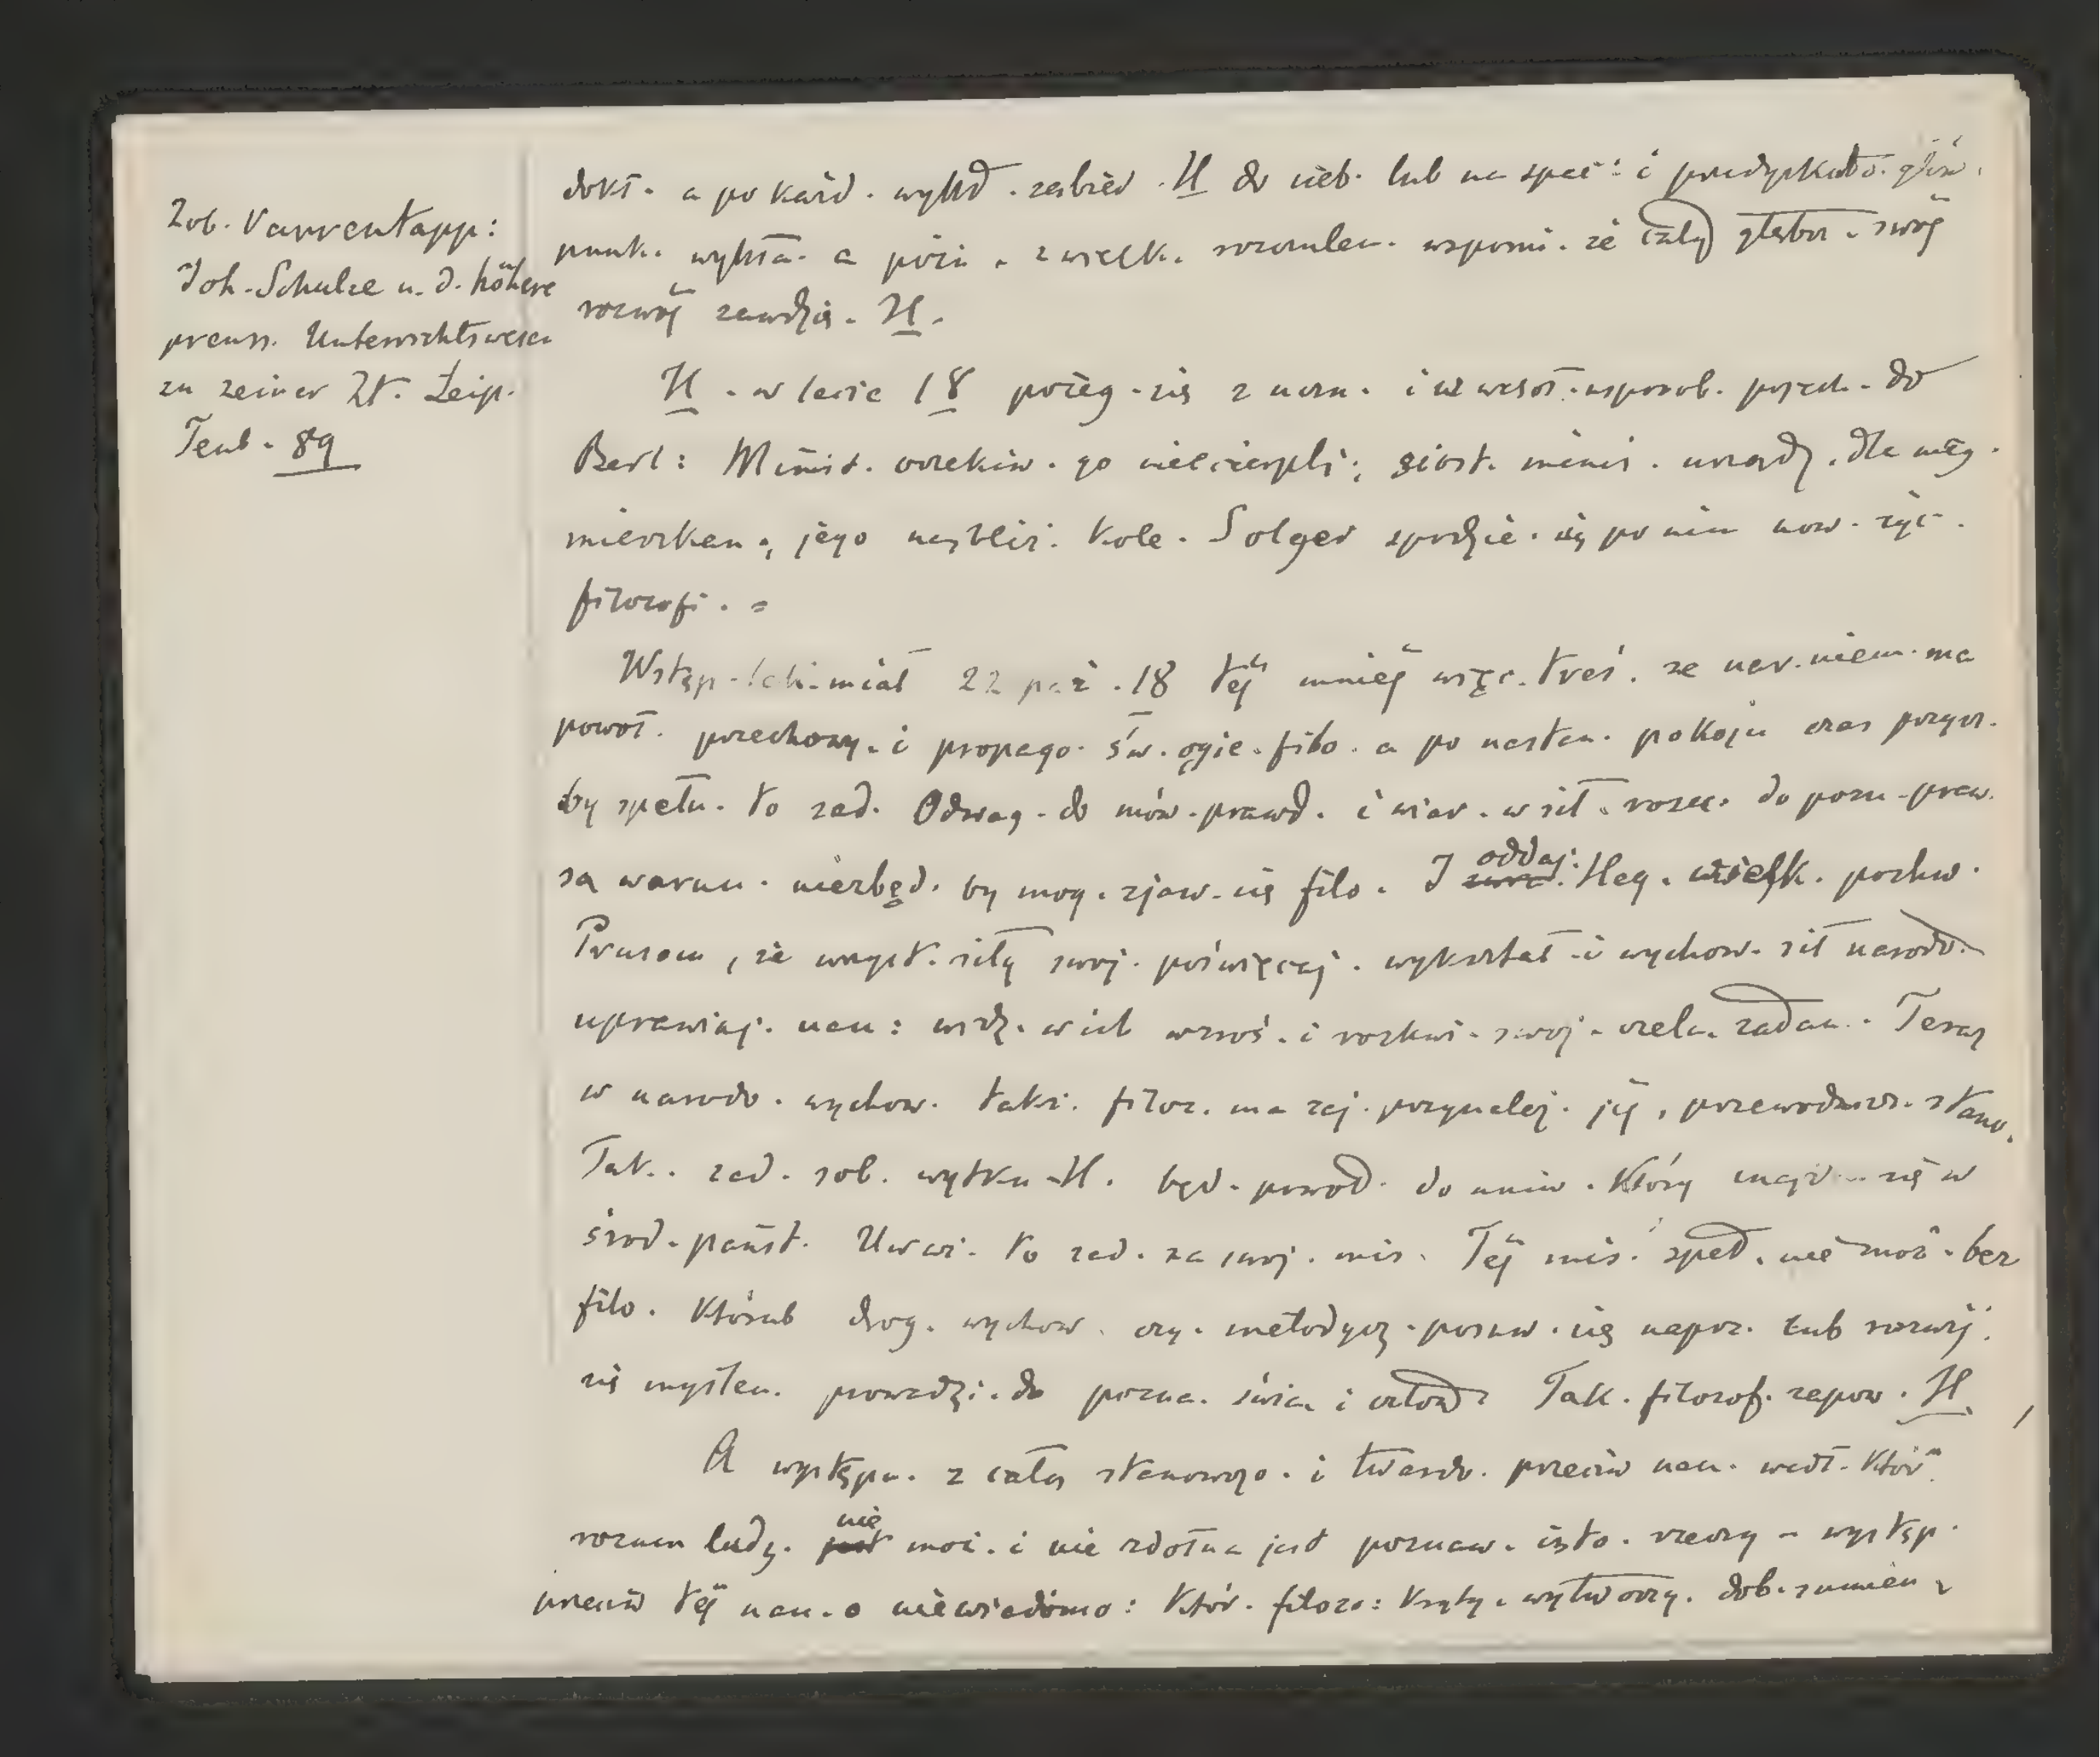 Zob. Varrentapp:
Joh. Schulze u. d. höhere
preuss. Unterrichtswesen
zu seiner Zt. Leip.
Teub. 89
dokt. a po każd. wykł. zabier. H do sieb. lub na spac: i przedyskuto. głów.
punk. wykła. a późn. z wielk. rozrzulen. wspomi. że cały głębsz. swój
rozwój zawdzię. H.
H. w lecie 18 pożeg. się z ucz. i w wesoł. usposob. pojech. do
Berl: Minist. oczekiw. go niecierpli; siost. minis. urządz. dla nieg.
mieszkan., jego najbliż. kole. Solger spodzie. się po nim now. życ.
filozofi. =
Wstęp. miał 22 paź. 18 téj mniéj więc. treś. że nar. niem. ma
powoł. przechowy. i propago. św. ogie. filo. a po nastan. pokoju czas przysz.
by spełn. to zad. Odwag. do mów. prawd. i wiar. w sił. rozu. do pozn. praw.
są warun. niezbęd. by mog. zjaw. się filo. I oddaj. Heg. wielk. pochw.
Prusom, że wszyst. siły swoj. poświęcaj. wykształ. i wychow. sił narodo.
uprawiaj. nau: widz. w ich wzroś. i rozkwi. swoj. czeln. zadan. Teraz
w narodo. wychow. takż. filoz. ma zaj. przynależ. jéj, przewodnicz. stano.
Tak. zad. sob. wytkn. H. będ. powoł. do uniw. który znajd. się w
środ. państ. Uważ. to zad. za swoj. mis. Téj mis. speł. nie moż. bez
filo. którab drog. wychow. czy. metodycz. posuw. się naprz. lub rozwij.
się myślen. prowadzi. do pozna. świa. i człow? Tak. filozof. zapow. H.
A występu. z całą stanowczo. i twardo. przeciw nau. wedł. któr.
rozum ludz. nie moż. i nie zdolna jest poznaw. isto. rzeczy – występ.
przeciw téj nau. o niewiadomo: któr. filozo: kryty. wytworzy. dob. sumien.